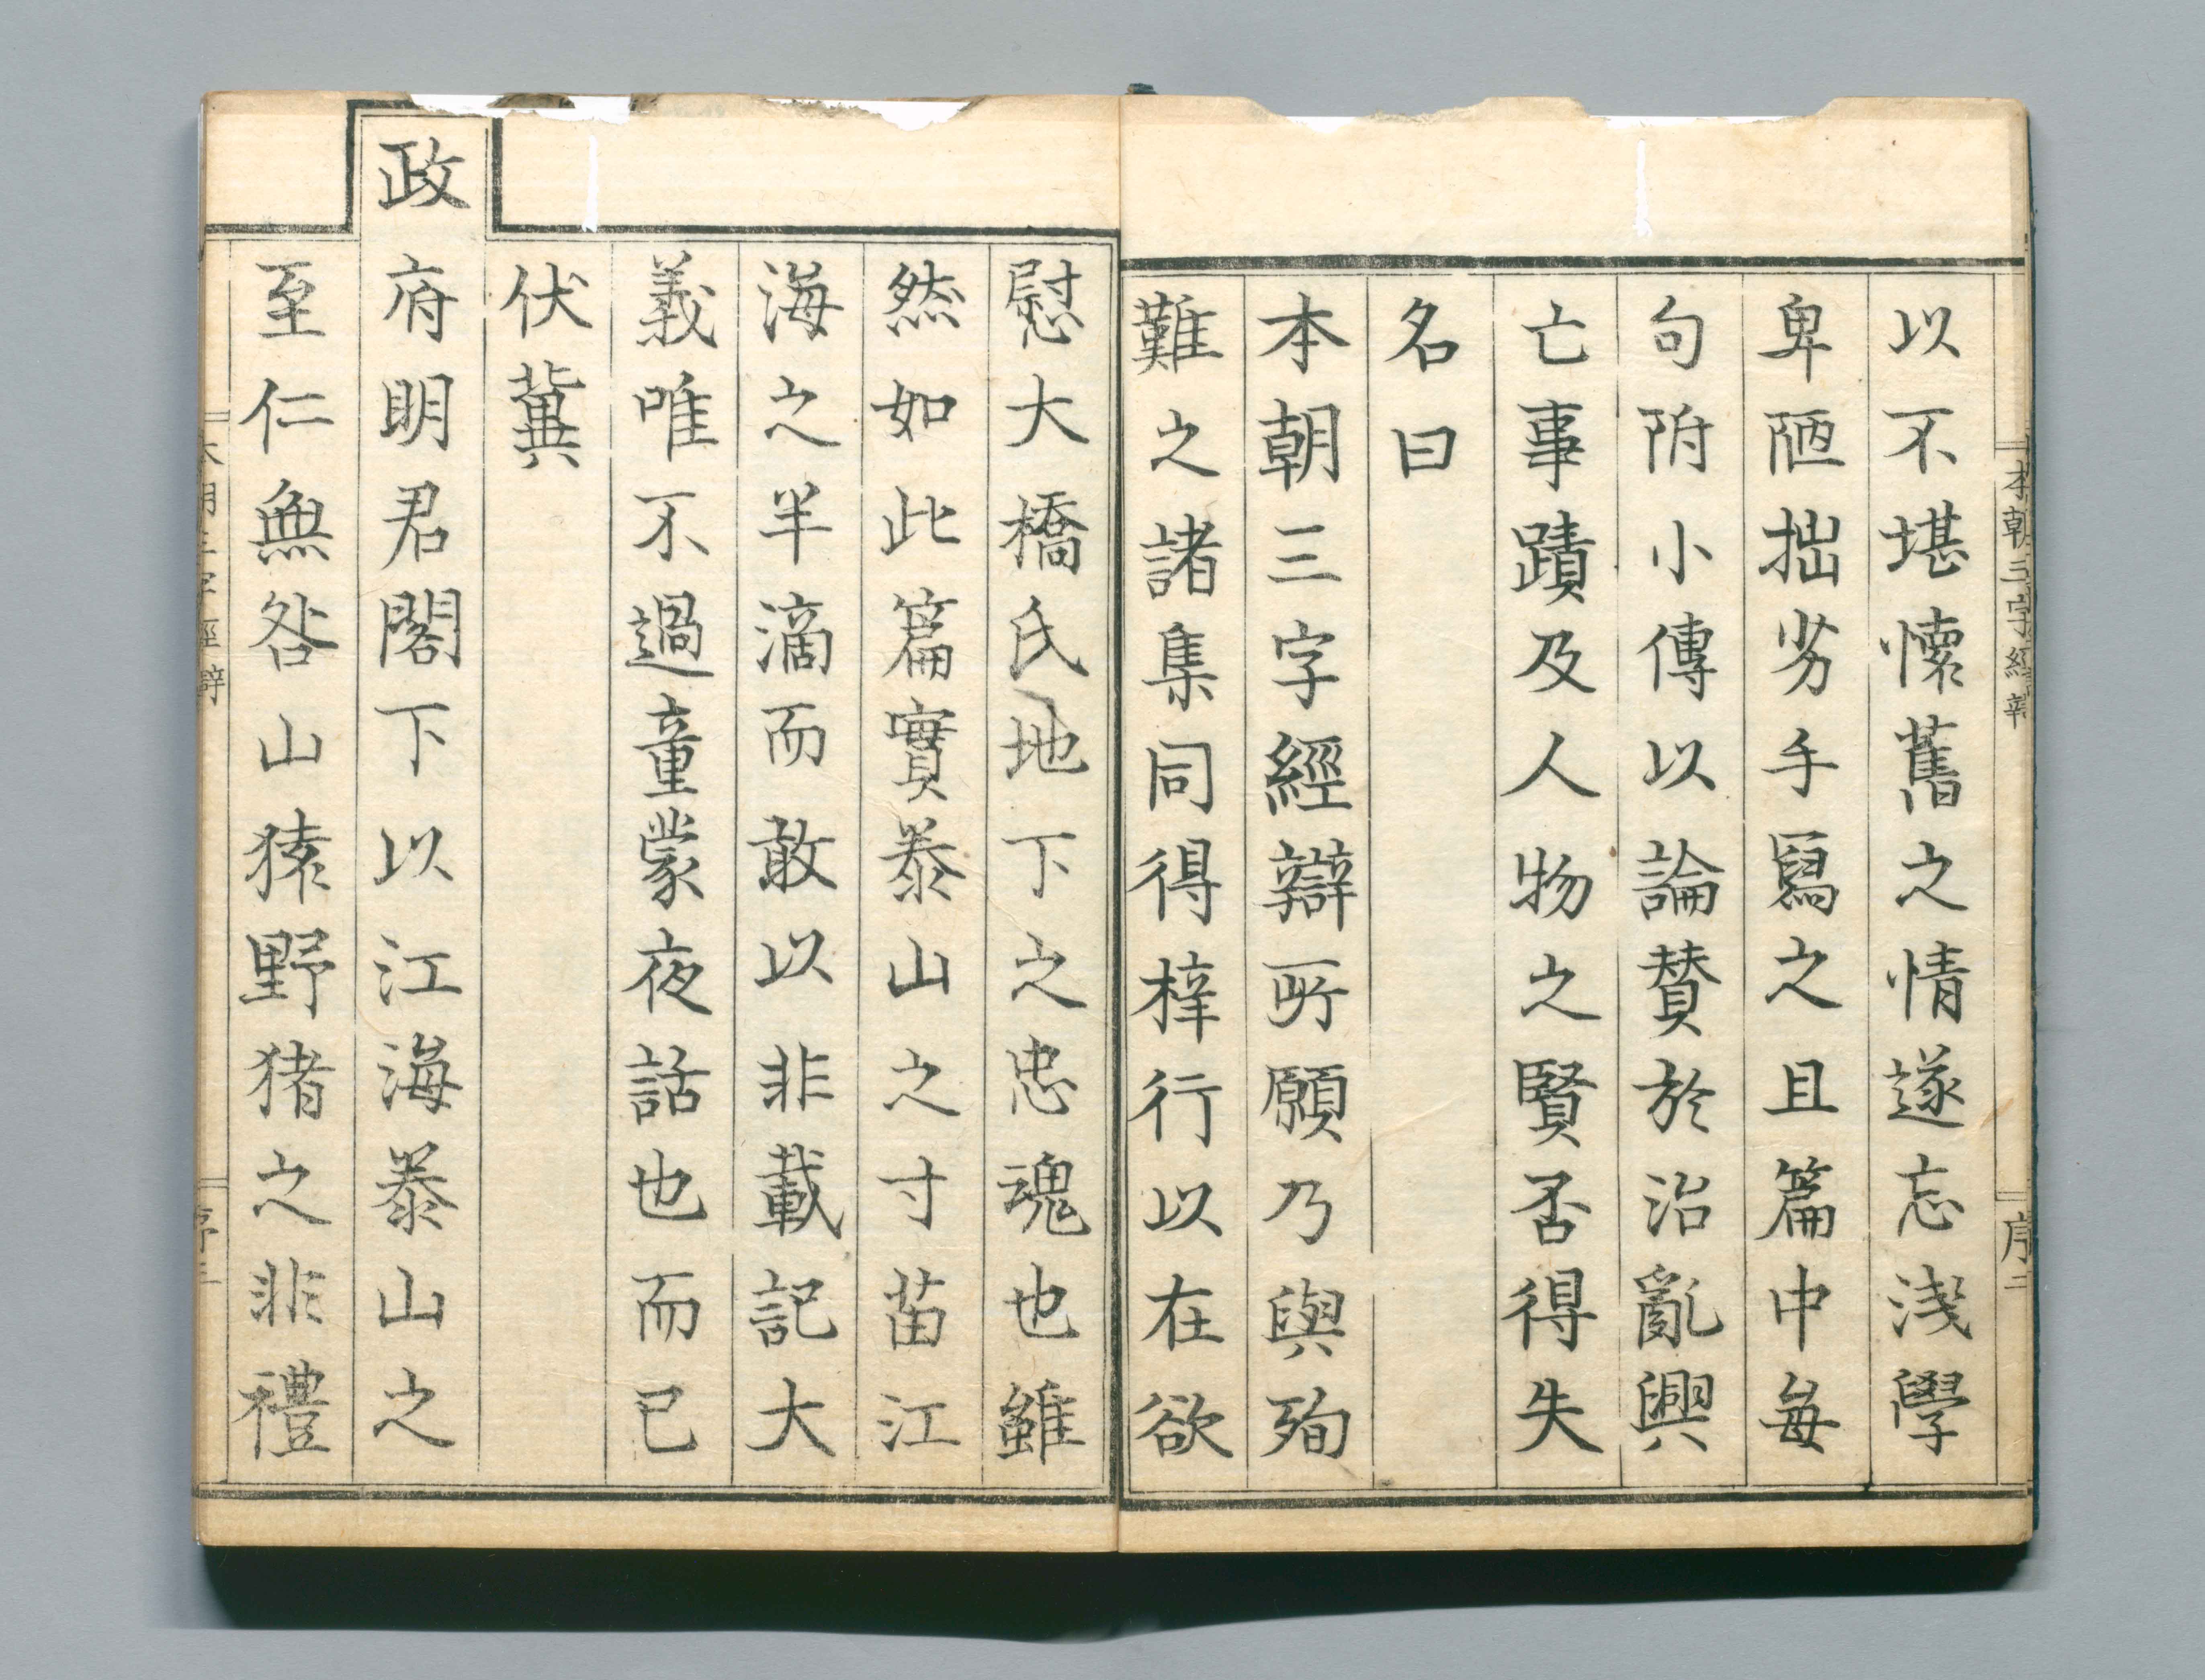 本朝三字經辯
序二
以不堪懷舊之情遂忘淺學
卑陋拙劣手寫之且篇中每
句附小傳以論賛於治亂興
亡事蹟及人物之賢否得失
名曰
本朝三字經辯所願乃與殉
難之諸集同得梓行以在欲
慰大橋氏地下之忠魂也雖
然如此篇實泰山之寸苗江
海之半滴而敢以非載記大
義唯不過童蒙夜話也而已
伏冀
政府明君閣下以江海泰山之
至仁無咎山猿野猪之非禮